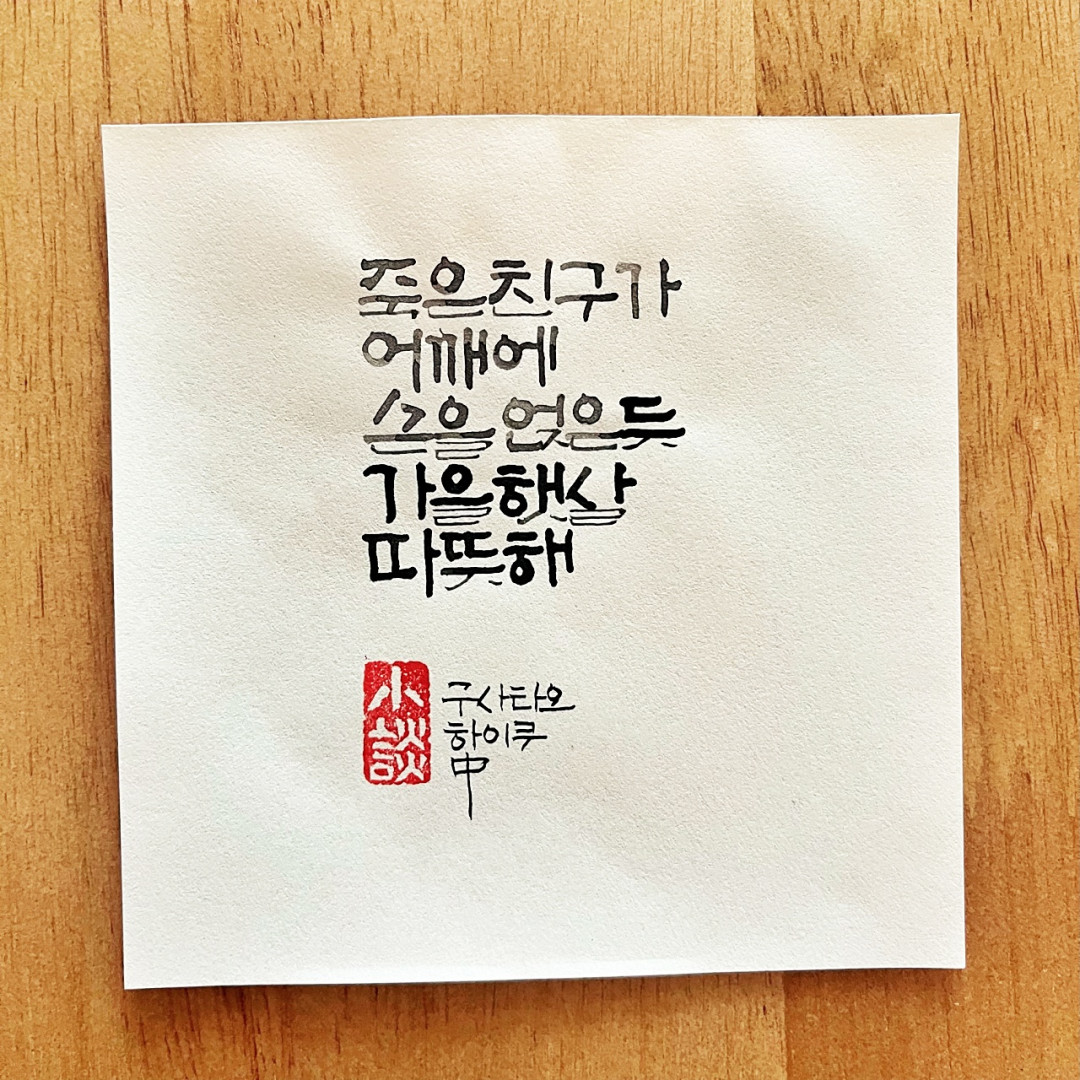 죽은 친구가
어깨에
손을 얹은 듯
가을 햇살
따뜻해
小談
구사타오
하이쿠
中